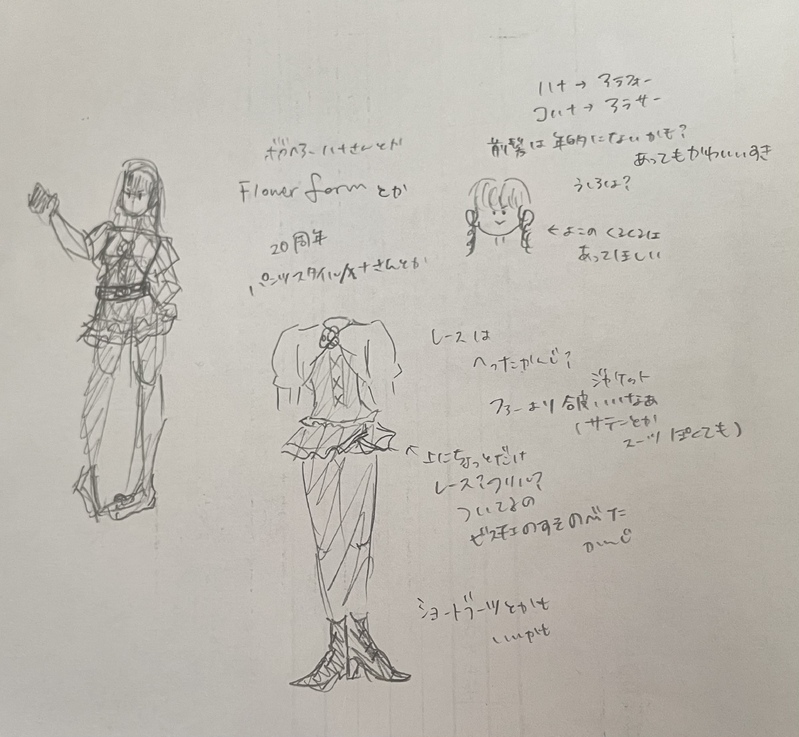 ハナ→アラフォー
コハナ→アラサー
前髪は年的にないかも？
あってもかわいいすき
うしろは？
←よこのくるくるは
あってほしい
ハナさんとか
Flower formとか
20周年
パンツスタイルハナさんとか
レースは
へったかんじ？
ジャケット
ファーより合皮いいなあ
(サテンとか
スーツぽくても)
←上にちょっとだけ
レース？フリル？
ついてるの
ビスチェのすそのべた
かんじ
ショートブーツとかも
いいかも